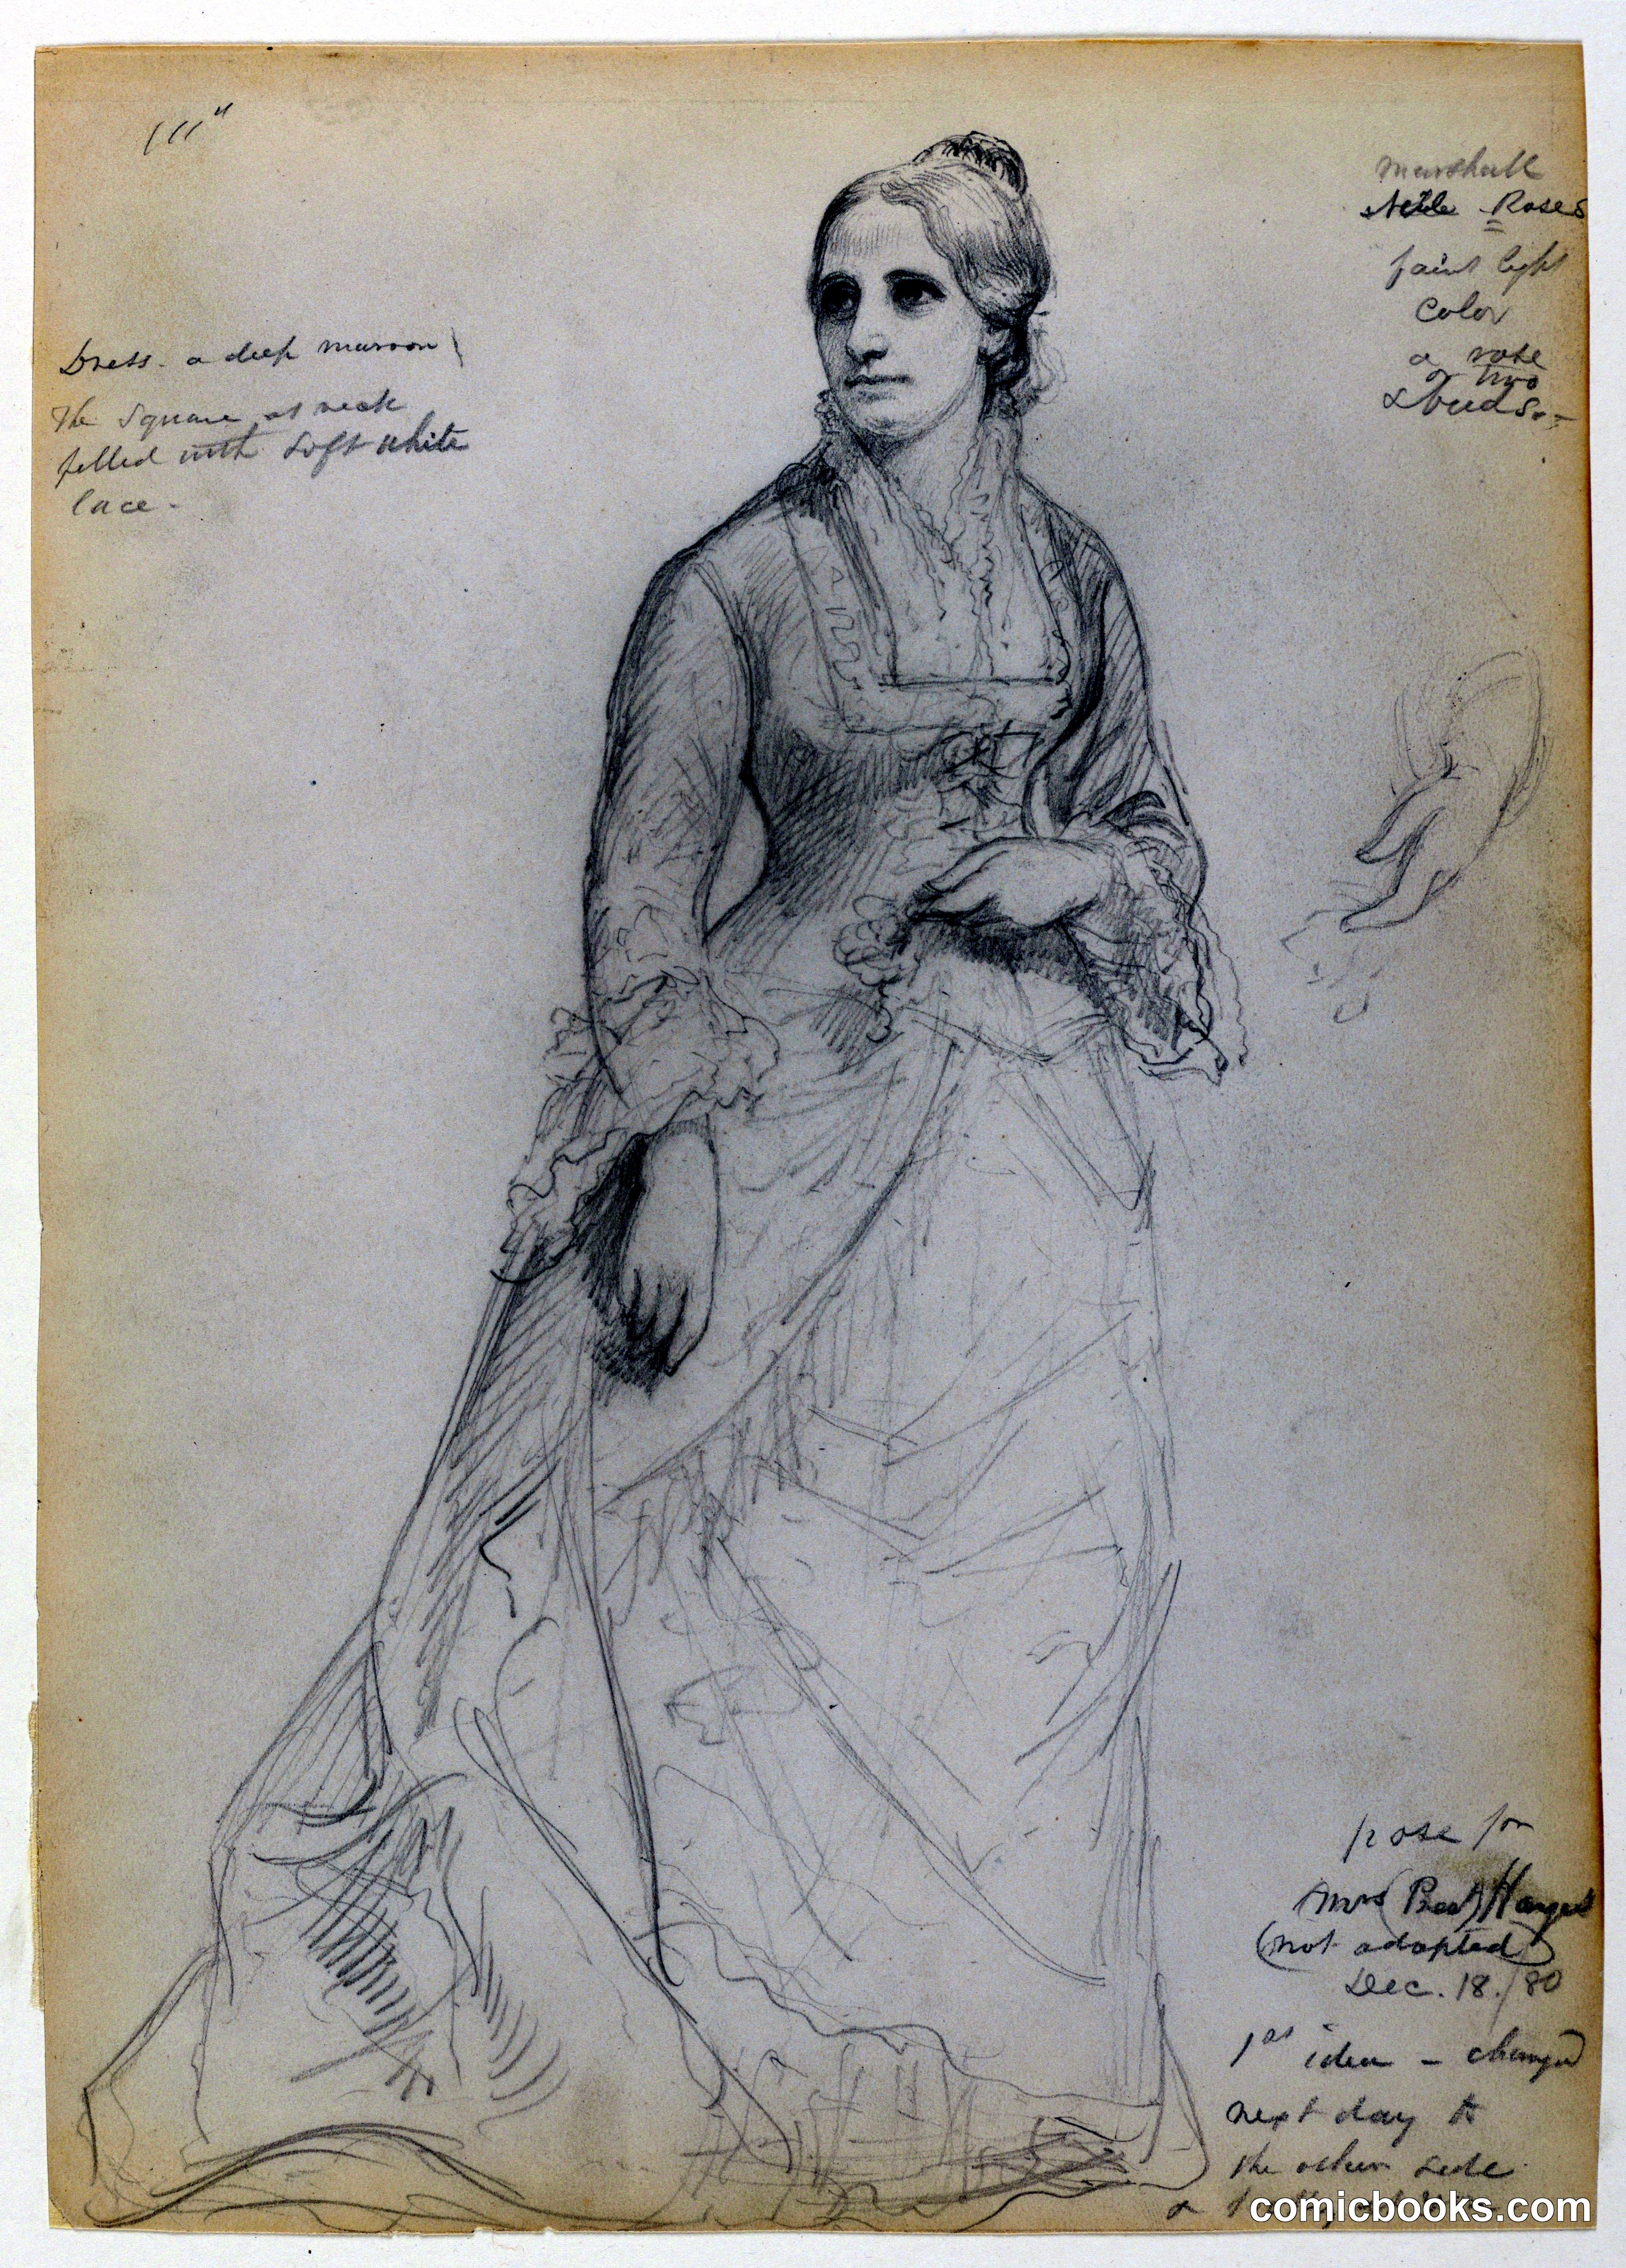 111"
Dress - a deep maroon
The Square at neck
filled with soft white
lace -
Marshall
Niel Roses
faint light
color
a rose
or two
& buds. -
pose for
Mrs (Pres) Hayes
(not adopted)
Dec. 18. / 80
1st idea - changed
next day to
the other side
comicbooks.com